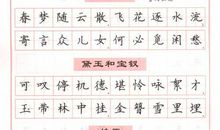 春梦随云散飞花逐水流
寄言众儿女何必觅闲愁
黛玉和宝钗
可叹停机德堪怜咏絮才
玉带林中挂金簪雪里埋